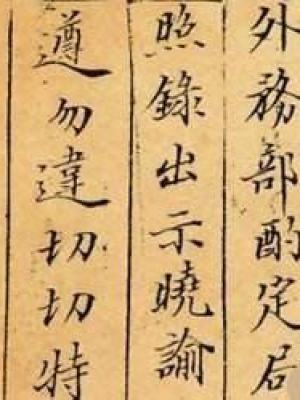 外務部酌定居
照錄出示曉諭
遵勿違切切特